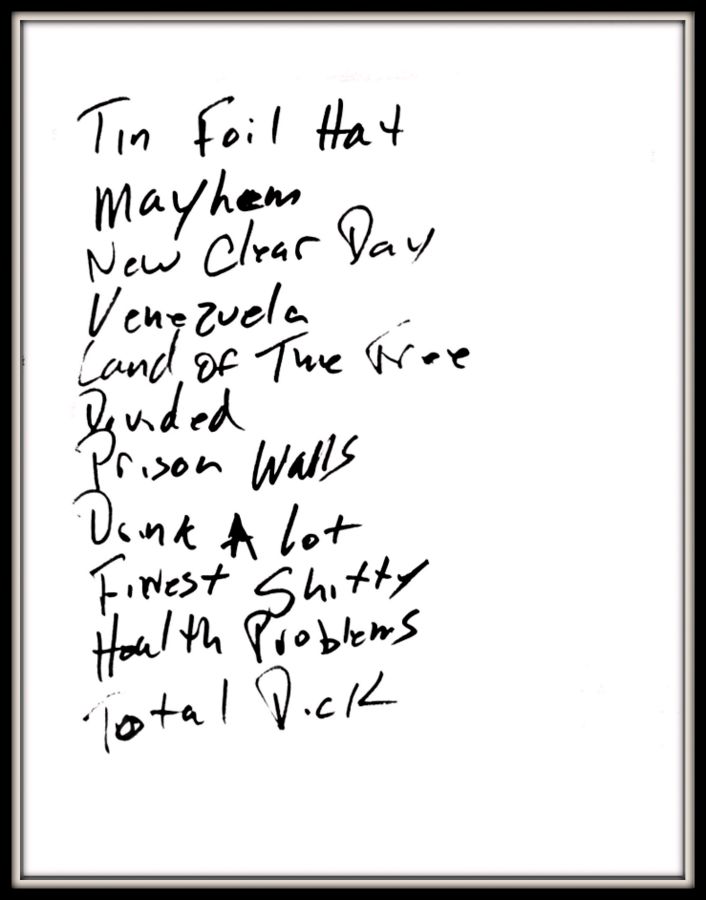 Tin Foil Hat
Mayhem
New Clear Day
Venezuela
Land of The Free
Divided
Prison Walls
Drink A lot
Finest Shitty
Health Problems
Total Dick